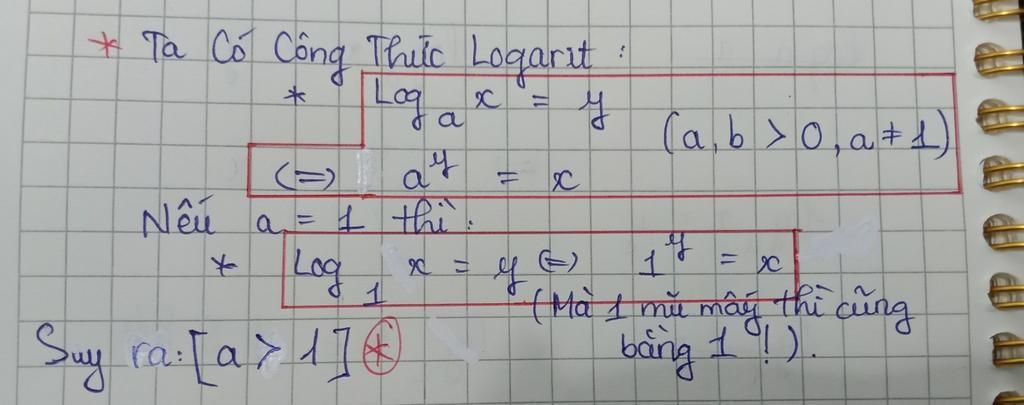 * Ta Có Công Thức Logarit :
* Log_a x = y
(a, b > 0, a ≠ 1)
(=) a^y = x
Nếu a = 1 thì:
* Log_1 x = y (=) 1^y = x
(Mà 1 mũ mấy thì cũng
bằng 1 !).
Suy ra: [a > 1] *